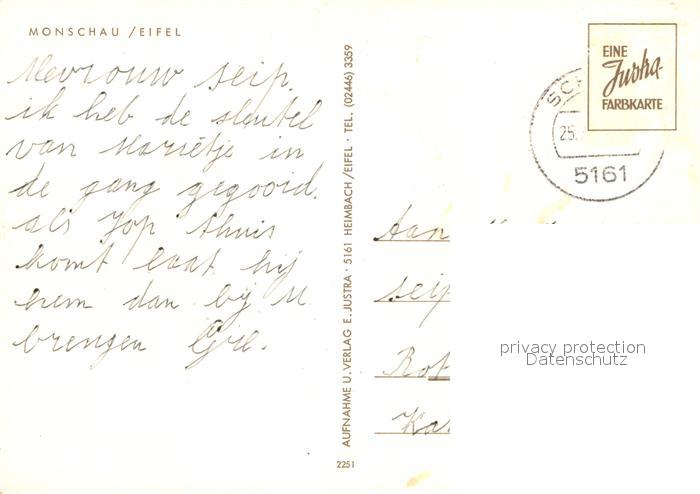 MONSCHAU /EIFEL
Mevrouw Seip,
ik heb de sleutel
van Marietje in
de gang gegooid.
als Jop thuis
komt laat hij
hem dan bij U
brengen Gré.
AUFNAHME U. VERLAG E. JUSTRA · 5161 HEIMBACH/EIFEL · TEL. (02446) 3359
2251
EINE
Justra-
FARBKARTE
25.
5161
Aan
Seip
Rot
Ka
privacy protection
Datenschutz